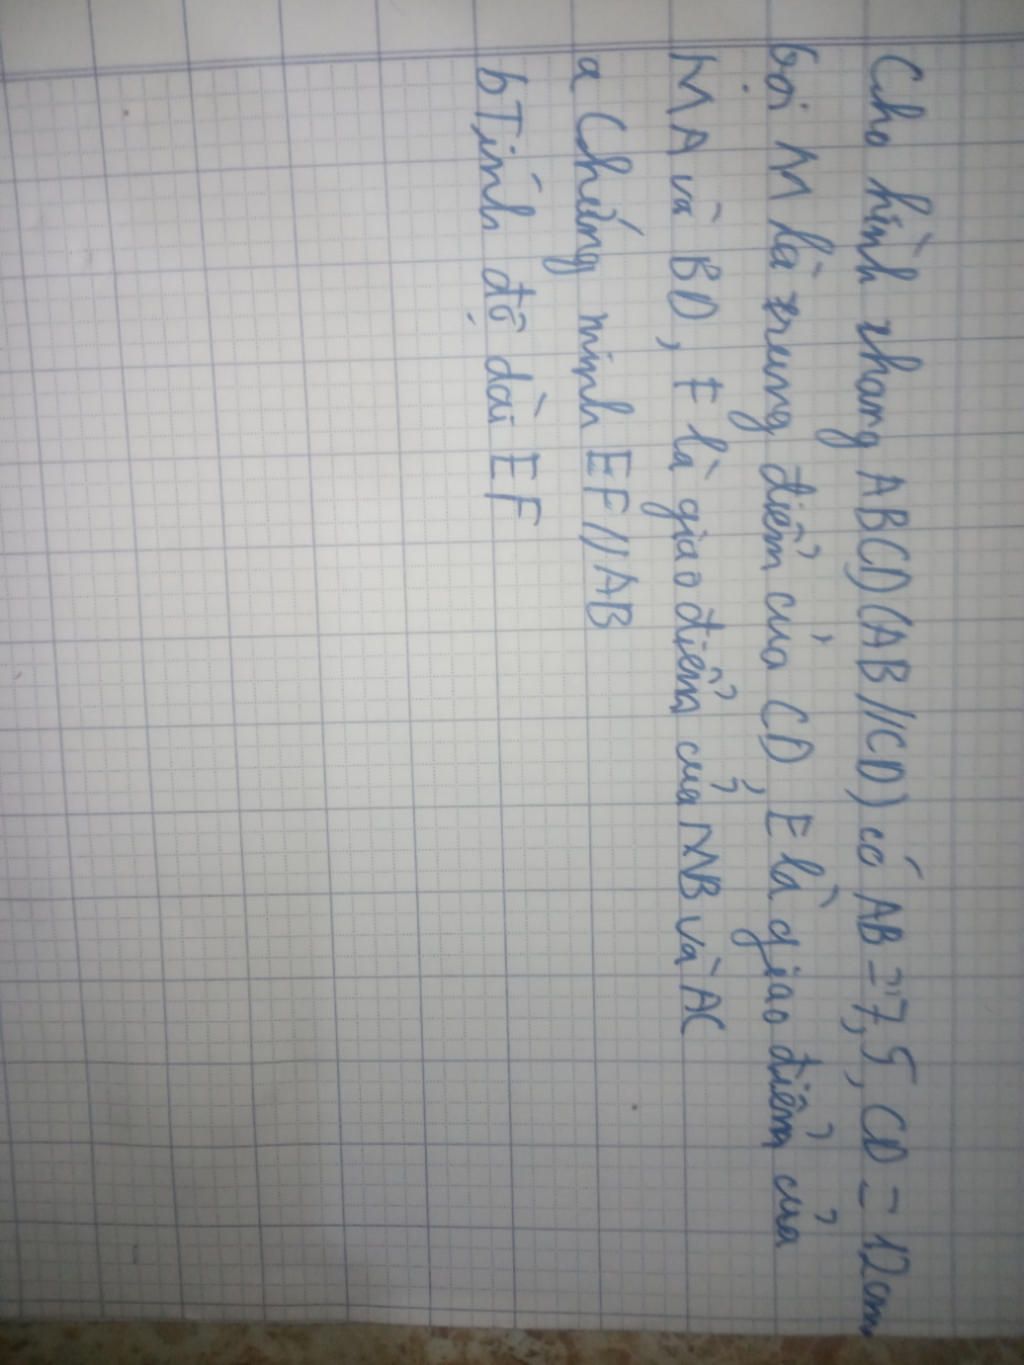 Cho hình thang ABCD (AB//CD) có AB = 7,5, CD = 12cm
Gọi M là trung điểm của CD, E là giao điểm của
MA và BD, F là giao điểm của MB và AC
a Chứng minh EF//AB
b Tính độ dài EF